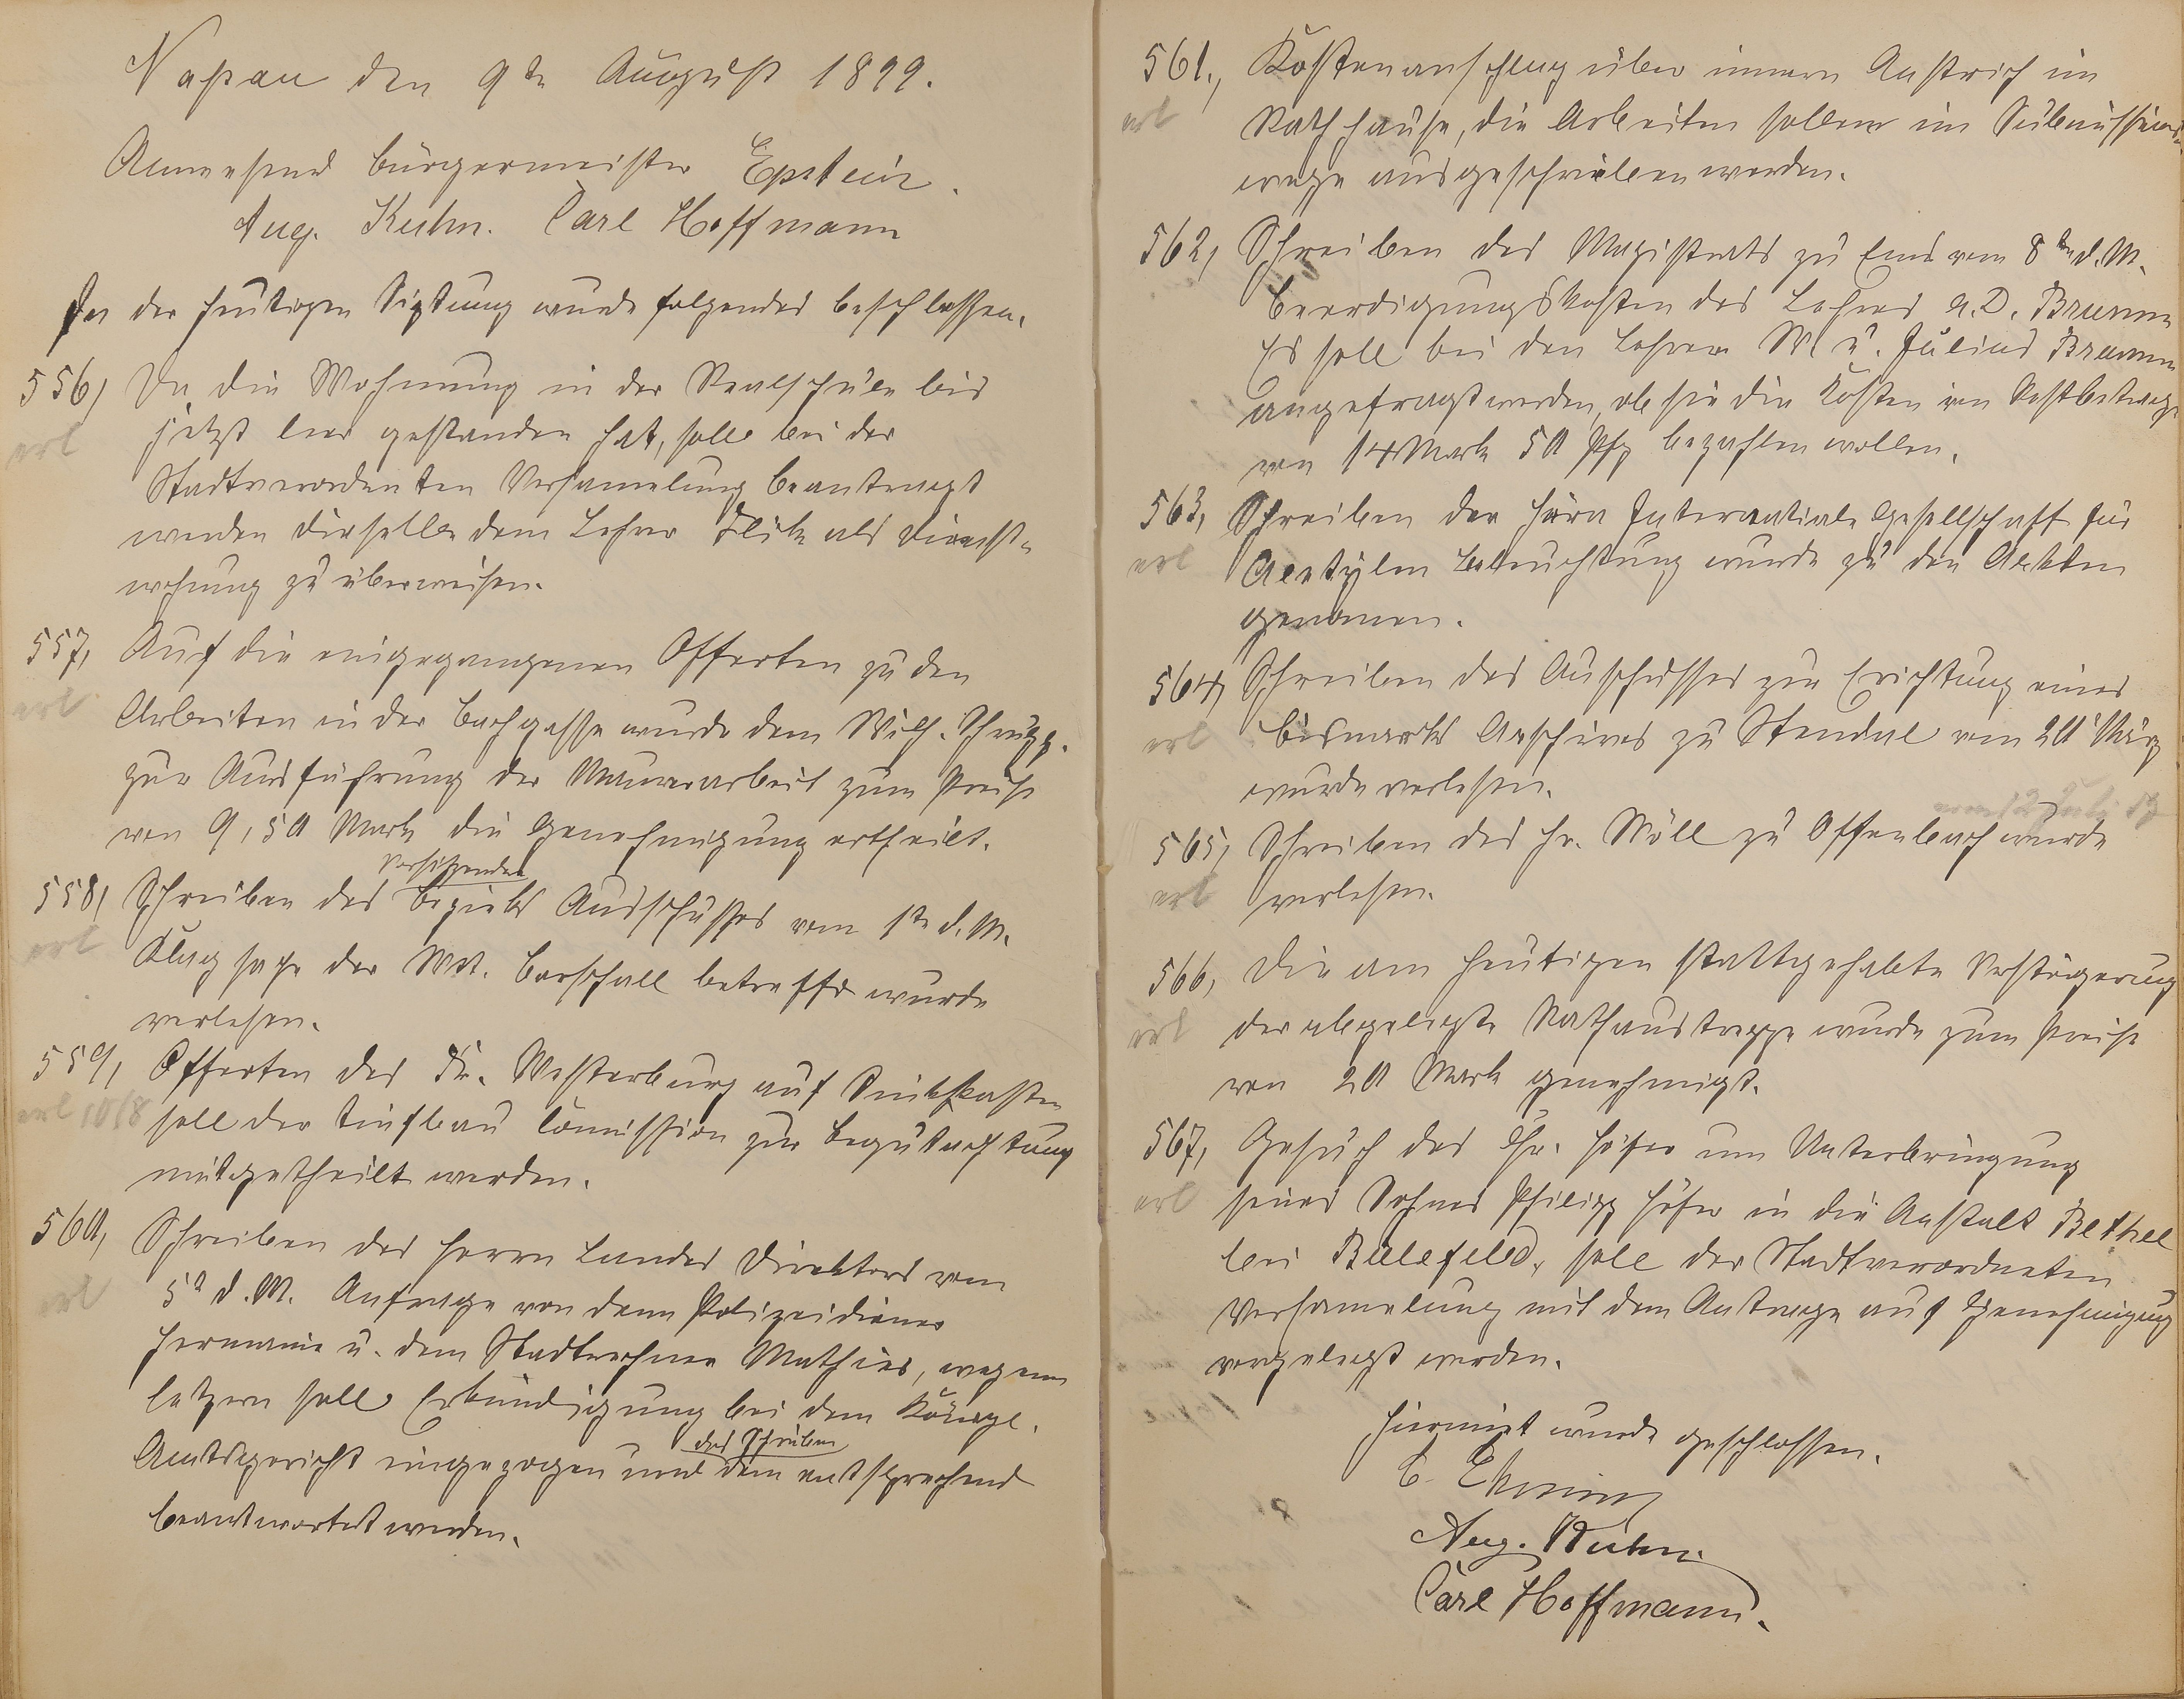 Nassau den 9te August 1899.
Anwesend Bürgermeister Epstein.
Aug. Kuhn. Carl Hoffmann
In der heutigen Sitzung wurde folgendes beschlossen.
556, Da die Wohnung in der Realschule bis
erl jetzt leer gestanden hat, solle bei der
Stadtverordenten Versamelung beantragt
werden dieselbe dem Lehrer Flick als Dienst-
wohnung zu überweisen.
557, Auf die eingegangenen Offerten zu den
erl Arbeiten in der Bachgasse wurde dem Wilh. Schrupp.
zur Ausführung der Maurerarbeit zum Preise
von 9,50 Mark die Genehmigung ertheilt.
Vorsitzenden
558, Schreiben des Bezirks Ausschusses vom 1te d. M.
erl Klagsache der Wwt. Barschall betreffd wurde
verlesen.
559, Offerten des Fr. Westerburg auf Sinkkasten
erl 10/8 soll der Tiefbau Commission zur Begutachtung
mitgetheilt werden.
560, Schreiben des Herrn Landes Direktors vom
erl 5n d. M. Anfrage von dem Polizeidiener
Hermanie u. dem Stadtrechner Mathies, wegen
letzern soll Erkundigung bei dem Königl.
das Schreiben
Amtsgericht eingezogen und dem entsprechend
beantwortet werden.
561., Kostenanschlag über innern Anstrich im
erl Rathhause, die Arbeiten sollen im Submissions
wege ausgeschrieben werden.
562, Schreiben des Magistrats zu Ems vom 8ten d. M.
Beerdigungskosten des Lehrers a. D. Brumm
Es soll bei den Lehrern W. u. Julius Brumm
angefragt werden, ob sie die Kosten im Restbetrage
von 14 Mark 50 Pfg bezahlen wollen.
563, Schreiben der Hära Internationale Gesellschaft für
erl Acetylen Beleuchtung wurde zu den Ackten
genomen.
564, Schreiben des Auschusses zur Erichtung eines
erl Bismarks Archives zu Stendal vom 20 März
wurde verlesen.
vom 12 Juli 99
565, Schreiben des Hr. Wöll zu Offenbach wurde
erl verlesen.
566, Die am heutigen stattgehabte Verstigerung
erl der abgelegte Rathaustreppe wurde zum Preise
von 20 Mark genehmigt.
567, Gesuch des Chr. Höfer um Unterbringung
erl seines Sohnes Philipp Höfer in die Anstalt Bethel
bei Bielefeld, soll der Stadtverordneten
Versamelung mit dem Antrage auf Genehmigung
vorgelegt werden.
Hiermiet wurde geschlossen.
Aug. Kuhn.
Carl Hoffmann.